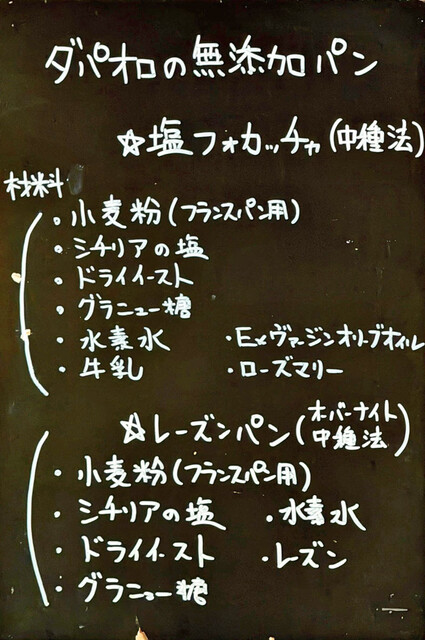 ダパオロの無添加パン
☆塩フォカッチャ(中種法)
材料
・小麦粉(フランスパン用)
・シチリアの塩
・ドライイースト
・グラニュー糖
・水素水 ・Exヴァージンオリーブオイル
・牛乳 ・ローズマリー
☆レーズンパン(オバーナイト中種法)
・小麦粉(フランスパン用)
・シチリアの塩 ・水素水
・ドライイースト ・レーズン
・グラニュー糖